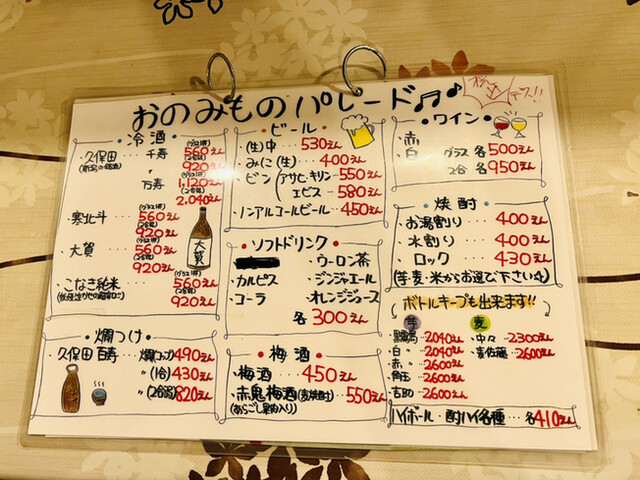 おのみものパレード♬♪
税込デス!!
・冷酒・
・久保田 千寿 (グラス1杯) 560えん
(2合瓶) 920えん
〃 万寿 (グラス1杯) 1,120えん
(2合瓶) 2,040えん
・寒北斗 (グラス1杯) 560えん
(2合瓶) 920えん
・大賀 (グラス1杯) 560えん
(2合瓶) 920えん
大賀
・こなき純米 (グラス1杯) 560えん
(2合瓶) 920えん
・燗つけ・
・久保田 百寿 … 燗コップ 490えん
〃 (1合) 430えん
〃 (2合弱) 820えん
・ビール・
・(生)中 … 530えん
・みに(生) … 400えん
・ビン (アサヒ・キリン … 550えん
エビス … 580えん
・ノンアルコールビール … 450えん
・ソフトドリンク・
・ウーロン茶
・カルピス ・ジンジャエール
・コーラ ・オレンジジュース
各300えん
・梅酒・
・梅酒 … 450えん
・赤鬼梅酒(麦焼酎) … 550えん
(あらごし果肉入り)
・ワイン・
・赤
・白 グラス 各500えん
2合 各950えん
・焼酎・
・お湯割り … 400えん
・水割り … 400えん
・ロック … 430えん
(芋・麦・米からお選び下さい☆)
ボトルキープも出来ます!!
芋
・黒霧島 … 2,040えん
・白〃 … 2,040えん
・赤〃 … 2,600えん
・角玉 … 2,600えん
・吉助 … 2,600えん
麦
・中々 … 2,300えん
・麦佐藤 … 2,600えん
ハイボール・酎ハイ各種 … 各410えん